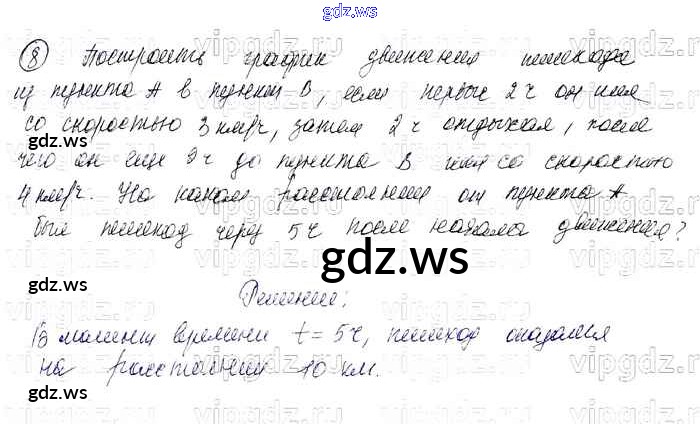 gdz.ws
8 Построить график движения пешехода
из пункта А в пункт В, если первые 2 ч он шел
со скоростью 3 км/ч, затем 2 ч отдыхал, после
чего он еще 2 ч до пункта В шел со скоростью
4 км/ч. На каком расстоянии от пункта А
был пешеход через 5 ч после начала движения?
gdz.ws
Решение:
В момент времени t = 5 ч, пешеход оказался
на расстоянии 10 км.